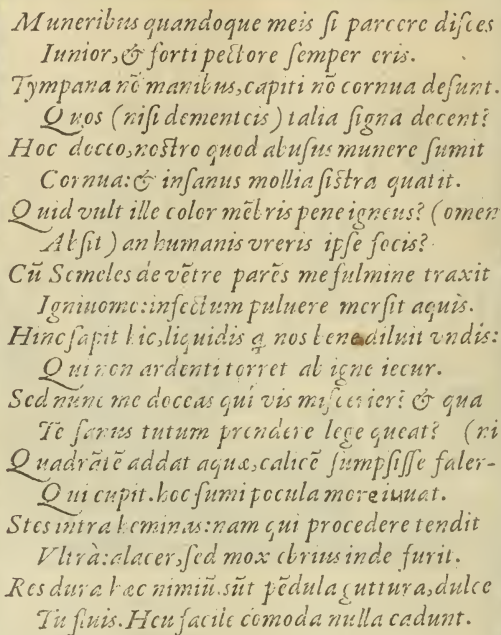 Muneribus quandoque meis ſi parcere diſces
Iunior, & forti pectore ſemper eris.
Tympana nō manibus, capiti nō cornua deſunt.
Quos (niſi dementeis) talia ſigna decent?
Hoc doceo, noſtro quod abuſus munere ſumit
Cornua: & inſanus mollia ſiſtra quatit.
Quid vult ille color mēbris pene igneus? (omen
Abſit) an humanis vreris ipſe focis?
Cū Semeles de vētre parēs me fulmine traxit
Igniuomo: infectum puluere merſit aquis.
Hinc ſapit hic, liquidis q nos bene diluit vndis:
Qui non ardenti torret ab igne iecur.
Sed nunc me doceas qui vis miſcerier? & qua
Te ſanus tutum prendere lege queat? (ni
Quadrātē addat aquæ, calicē ſumpſiſſe faler-
Qui cupit. hoc ſumi pocula more iuuat.
Stes intra heminas: nam qui procedere tendit
Vltrà: alacer, ſed mox ebrius inde furit.
Res dura hæc nimiū. sūt pēdula guttura, dulce
Tu fluis. Heu facile cōmoda nulla cadunt.